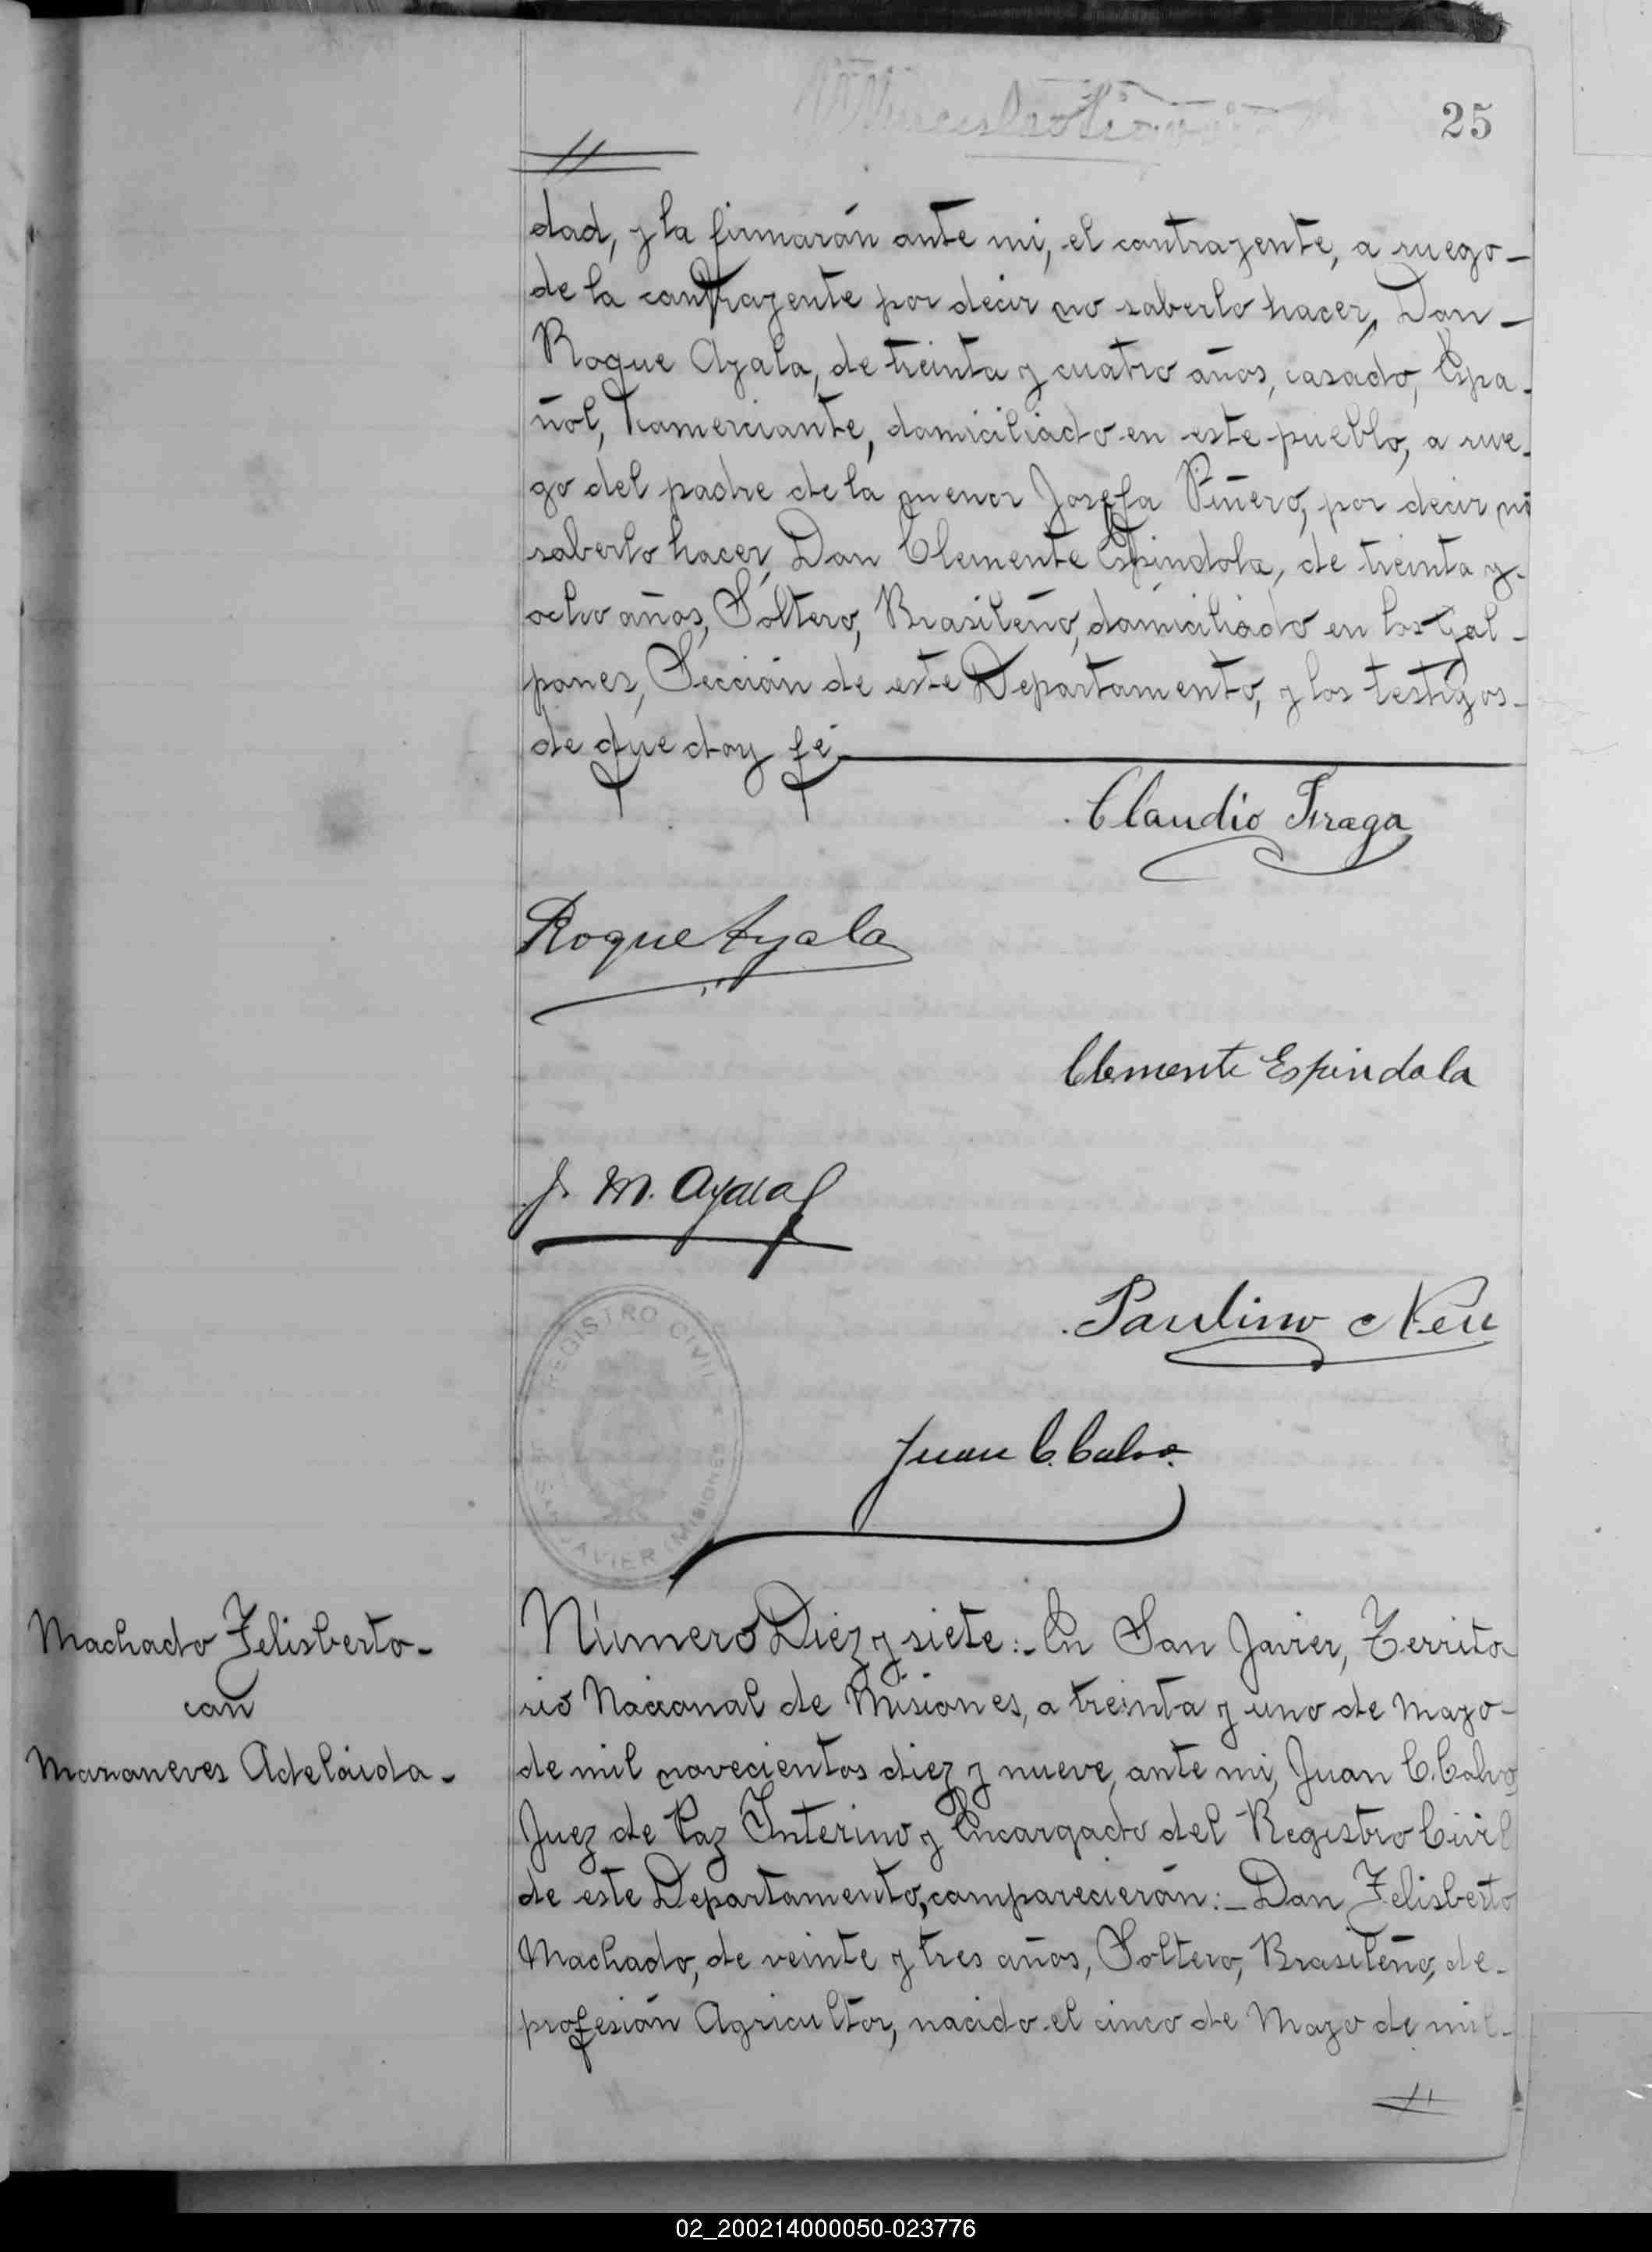 25
dad, y la firmarán ante mi, el contrayente, a ruego-
de la contrayente por decir no saberlo hacer, Don-
Roque Ayala, de treinta y cuatro años, casado, Espa-
ñol, Comerciante, domiciliado en este pueblo, a rue-
go del padre de la menor Josefa Piñero, por decir no
saberlo hacer, Don Clemente Espindola, de treinta y-
ocho años, Soltero, Brasileño, domiciliado en los Gal-
pones, Sección de este Departamento, y los testigos-
de que doy fé
Claudio Fraga
Roque Ayala
Clemente Espindola
J. M. Ayala
Paulino Neu
REGISTRO CIVIL
SAN JAVIER (MISIONES)
Juan C. Calvo.
Machado Felisberto-
con
Maraneves Adelaida-
Número Diez y siete:- En San Javier, Territo
rio Nacional de Misiones, a treinta y uno de Mayo-
de mil novecientos diez y nueve, ante mi, Juan C. Calvo
Juez de Paz Interino y Encargado del Registro Civil
de este Departamento, comparecierón:- Don Felisberto
Machado, de veinte y tres años, Soltero, Brasileño, de-
profesión Agricultor, nacido el cinco de Mayo de mil-
02_200214000050-023776